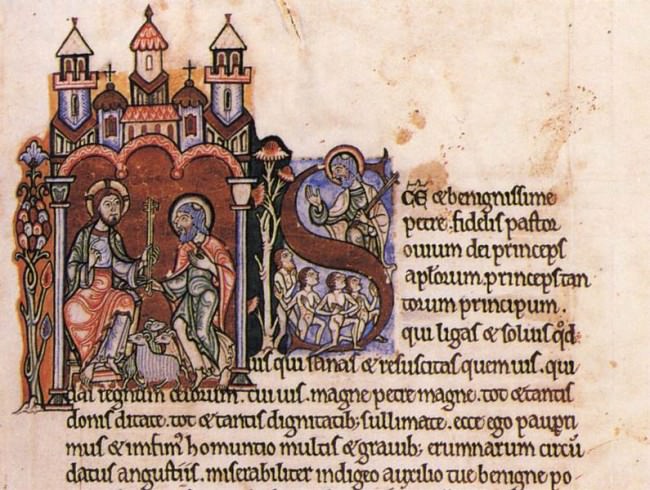 S
c̄e & benignissime
petre. fidelis pastor
ouium dei princeps
aplorum. princeps tan
torum principum.
qui ligas & soluis q̊d
uis qui sanas & resuscitas quem uis. qui
regnum celorum. cui uis. magne petre magne. tot & tantis
donis ditate. tot & tantis dignitatib; sullimate. ecce ego paupri
mus & infim' homuntio multis & grauib; erumnarum circū
datus angustiis. miserabiliter indigeo auxilio tue benigne po